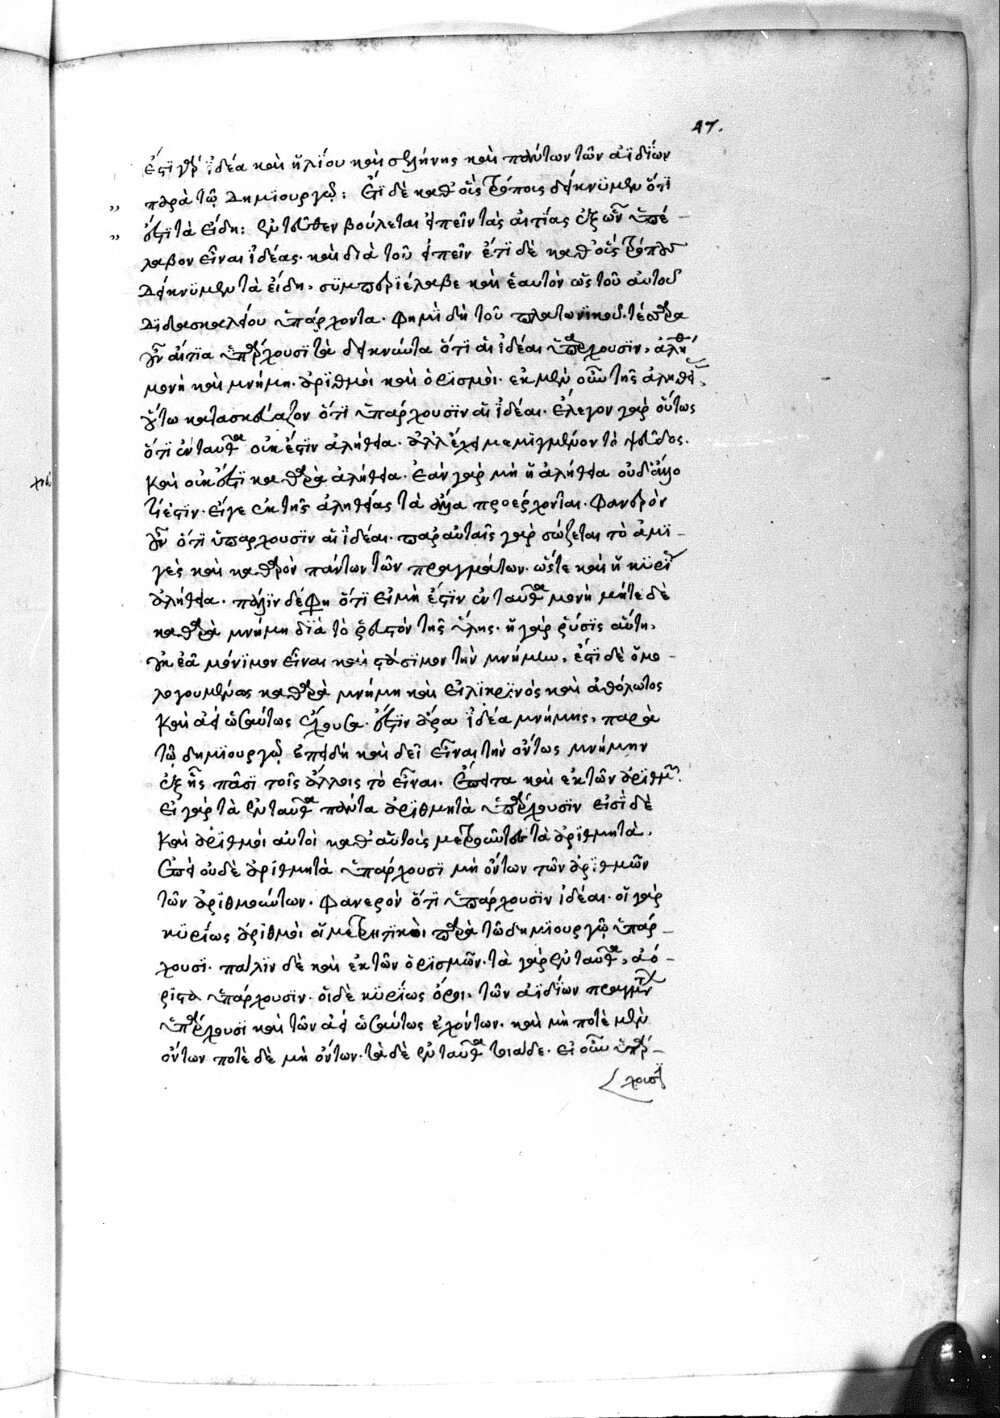 47.
ἔστι γὰρ ἰδέα καὶ ἡλίου καὶ σελήνης καὶ πάντων τῶν ἀϊδίων
παρὰ τῷ δημιουργῷ: ἔτι δὲ καθ' οὓς τρόπους δείκνυμεν ὅτι
ἔστι τὰ εἴδη: ἐντεῦθεν βούλεται εἰπεῖν τὰς αἰτίας ἐξ ὧν ὑπέ-
λαβον εἶναι ἰδέας. καὶ διὰ τοῦ εἰπεῖν ἔτι δὲ καθ' οὓς τρόπους
δείκνυμεν τὰ εἴδη, συμπεριέλαβε καὶ ἑαυτὸν ὡς τοῦ αὐτοῦ
διδασκαλείου ὑπάρχοντα. φημὶ δὴ τοῦ πλατωνικοῦ. τέσσαρα
οὖν αἴτια ὑπάρχουσι τὰ δεικνύντα ὅτι αἱ ἰδέαι ὑπάρχουσιν, ἀλήθεια
μονὴ καὶ μνήμη. ἀριθμοὶ καὶ ὁρισμοί. ἐκ μὲν οὖν τῆς ἀληθείας
οὕτω κατασκεύαζον ὅτι ὑπάρχουσιν αἱ ἰδέαι. ἔλεγον γὰρ οὕτως
ὅτι ἐνταῦθα οὐκ ἔστιν ἀλήθεια. ἀλλ' ἔχει μεμιγμένον τὸ ψεῦδος.
καὶ οὐκ ἔστι καθαρὰ ἀλήθεια. ἐὰν γὰρ μὴ ᾖ ἀλήθεια οὐδ' ἄλλο
τί ἐστιν. εἴγε ἐκ τῆς ἀληθείας τὰ ἄλλα προέρχονται. φανερὸν
οὖν ὅτι ὑπάρχουσιν αἱ ἰδέαι. παρ' αὐταῖς γὰρ σώζεται τὸ ἀμι-
γὲς καὶ καθαρὸν πάντων τῶν πραγμάτων. ὥστε καὶ ἡ κυρία
ἀλήθεια. πάλιν δέ φη ὅτι εἰ μὴ ἔστιν ἐνταῦθα μονὴ μήτε δὲ
καθαρὰ μνήμη διὰ τὸ ῥευστὸν τῆς ὕλης. ἡ γὰρ ῥύσις αὕτη,
οὐκ ἐᾷ μόνιμον εἶναι καὶ στάσιμον τὴν μνήμην, ἔστι δὲ ὁμο-
λογουμένως καθαρὰ μνήμη καὶ εἰλικρινὸς καὶ ἀθόλωτος
καὶ ἀεὶ ὡσαύτως ἔχουσα. ἔστιν ἄρα ἰδέα μνήμης, παρὰ
τῷ δημιουργῷ ἐπειδὴ καὶ δεῖ εἶναι τὴν ὄντως μνήμην
ἐξ ἧς πᾶσι τοῖς ἄλλοις τὸ εἶναι. ἔπειτα καὶ ἐκ τῶν ἀριθμῶν.
εἰ γὰρ τὰ ἐνταῦθα πάντα ἀριθμητὰ ὑπάρχουσιν εἰσὶ δὲ
καὶ ἀριθμοὶ αὐτοὶ καθ' αὑτοὺς μετροῦντες τὰ ἀριθμητά.
ἐπεὶ οὐδὲ ἀριθμητὰ ὑπάρχουσι μὴ ὄντων τῶν ἀριθμῶν
τῶν ἀριθμούντων. φανερὸν ὅτι ὑπάρχουσιν ἰδέαι. οἱ γὰρ
κυρίως ἀριθμοὶ οἱ μετρητικοὶ παρὰ τῷ δημιουργῷ ὑπάρ-
χουσι. πάλιν δὲ καὶ ἐκ τῶν ὁρισμῶν. τὰ γὰρ ἐνταῦθα, ἀό-
ριστα ὑπάρχουσιν. οἱ δὲ κυρίως ὅροι, τῶν ἀϊδίων πραγμάτων
ὑπάρχουσι καὶ τῶν ἀεὶ ὡσαύτως ἐχόντων. καὶ μὴ ποτὲ μὲν
ὄντων ποτὲ δὲ μὴ ὄντων. τὰ δὲ ἐνταῦθα τοιάδε. εἰ οὖν ὑπάρ-
χουσι